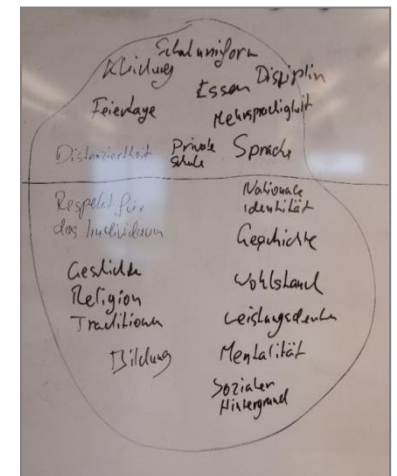 Schuluniform
Kleidung
Essen Disziplin
Feiertage
Mehrsprachigkeit
Distanziertheit
Private
Schule
Sprache
Respekt für
das Individuum
Nationale
Identität
Geschichte
Geschichte
Religion
Traditionen
Bildung
Wohlstand
Leistungsdenken
Mentalität
Sozialer
Hintergrund